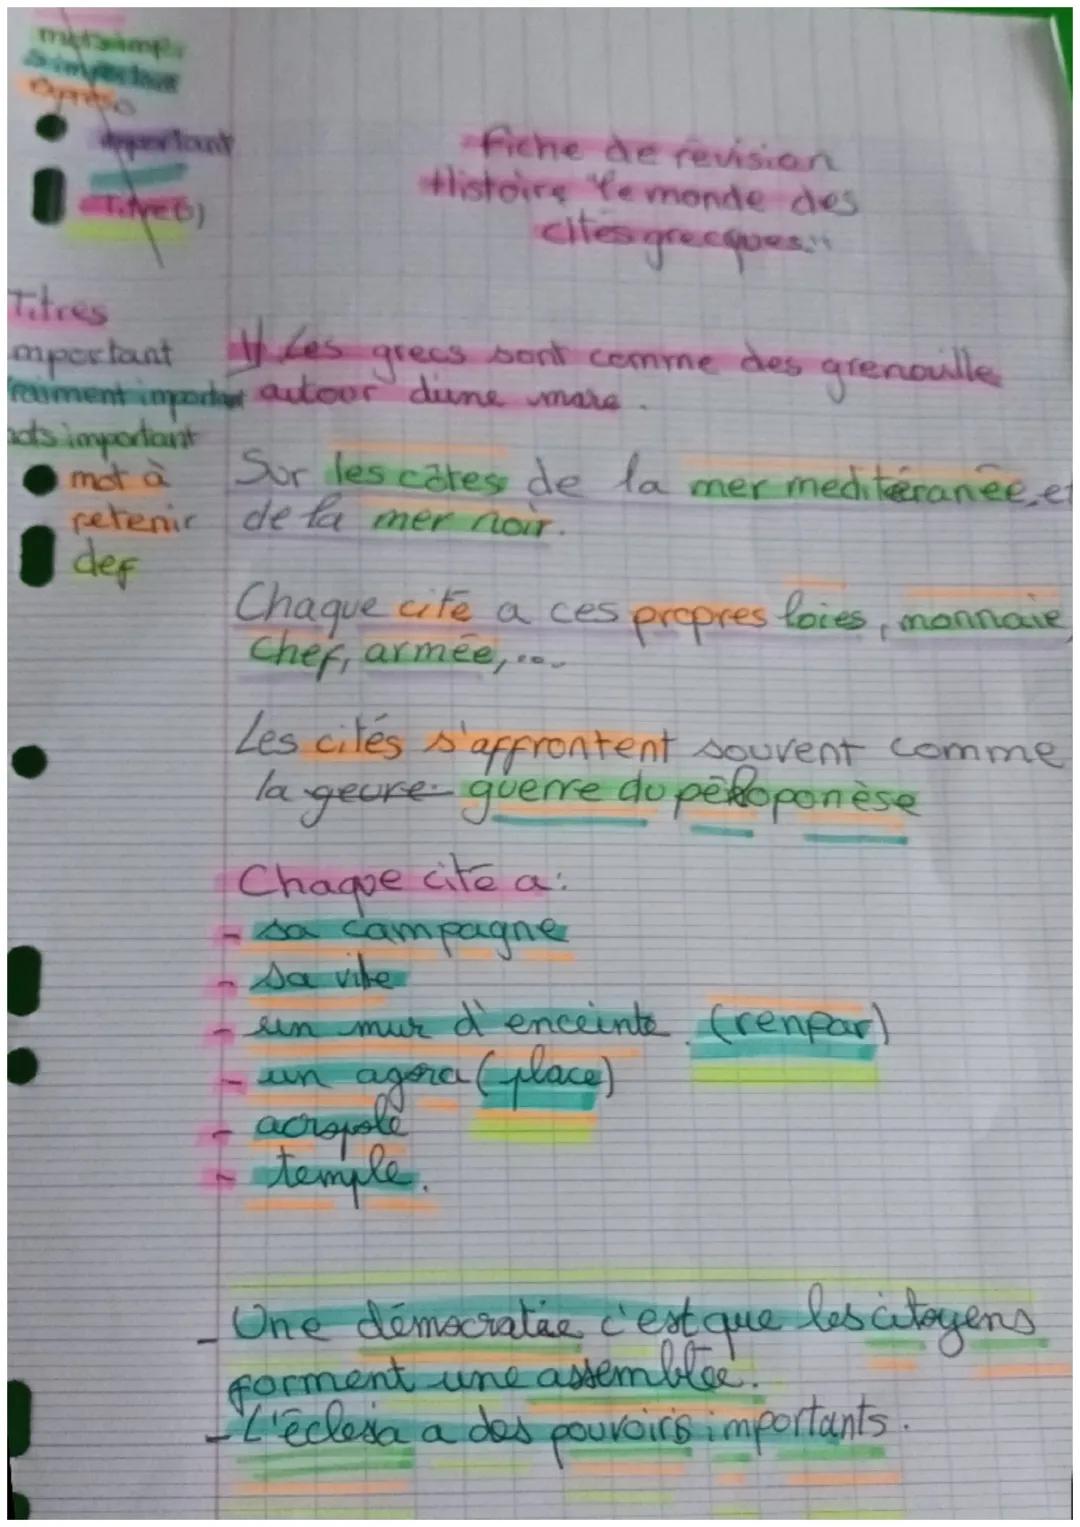 important
Titre(s)
Fiche de révision
Histoire "le monde des
cités grecques."
Titres
mportant
raiment important
ots important
mot à
retenir
def
1) Les grecs sont comme des grenouille
autour d'une mare.
Sur les côtes de la mer meditéranée, et
de la mer noir.
Chaque cité a ces propres loies, monnaie,
chef, armée, ...
Les cités s'affrontent souvent comme
la geure guerre du péloponèse
Chaque cité a:
- sa campagne
- sa ville
- un mur d'enceinte. (renpar)
- un agora (place)
- acropole
- temple.
- Une démocratie c'est que les citoyens
forment une assemblée.
- L'éclesia a des pouvoirs importants.